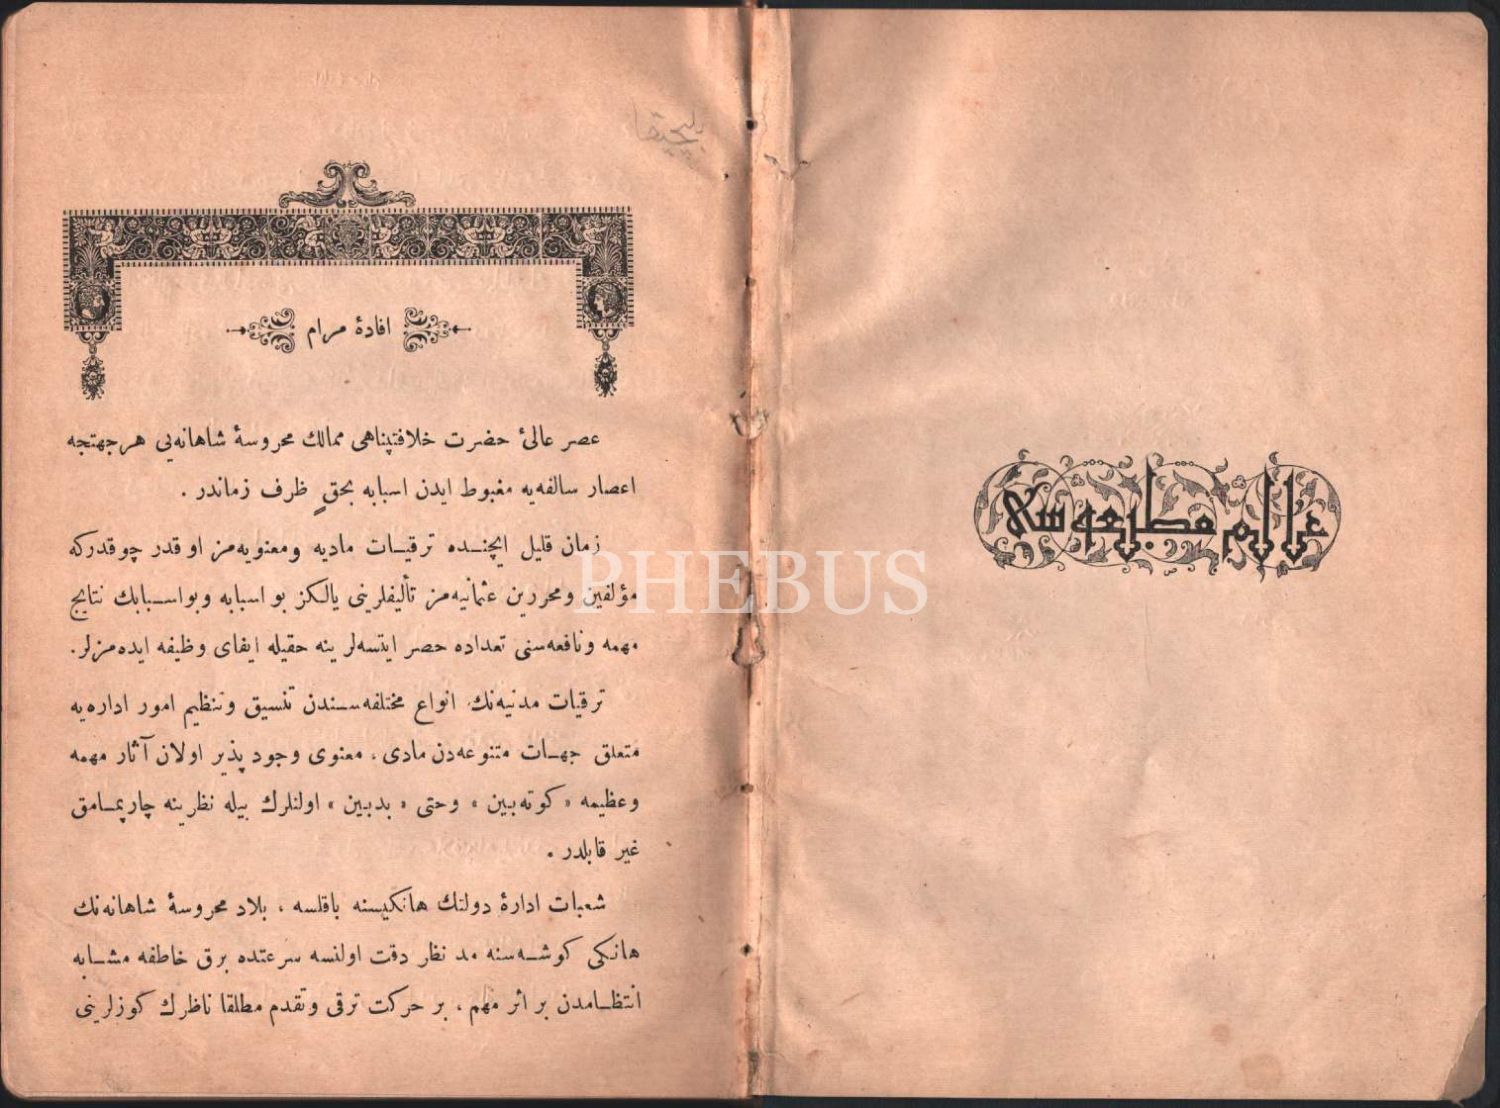 عالم مطبعه سی
افادهٔ مرام
عصر عالیٔ حضرت خلافتپناهی ممالك محروسهٔ شاهانه‌یی هر جهتجه
اعصار سالفه‌یه مغبوط ایدن اسبابه بحقٍ ظرف زماندر .
زمان قلیل ایچنـده ترقیـات مادیه ومعنویه‌مز او قدر چوقدركه
مؤلفین ومحررین عثمانیه‌مز تألیفلرینی یالكز بو اسبابه وبواسـبابك نتایج
مهمه ونافعه‌سنی تعداده حصر ایتسه‌لر ینه حقیله ایفای وظیفه ایده‌مزلر.
ترقیات مدنیه‌نك انواع مختلفه‌سـندن تنسیق وتنظیم امور اداره‌یه
متعلق جهـات متنوعه‌دن مادی ، معنوی وجود پذیر اولان آثار مهمه
وعظیمه « كوته‌بین » وحتی « بدبین » اولنلرك بیله نظرینه چارپمـامق
غیر قابلدر .
شعبات ادارهٔ دولتك هانكیسنه باقلسه ، بلاد محروسهٔ شاهانه‌نك
هانكی كوشـه‌سنه مد نظر دقت اولنسه سرعتده برق خاطفه مشـابه
انتظـامدن بر اثر مهم ، بر حركت ترقی وتقدم مطلقا ناظرك كوزلرینی
PHEBUS